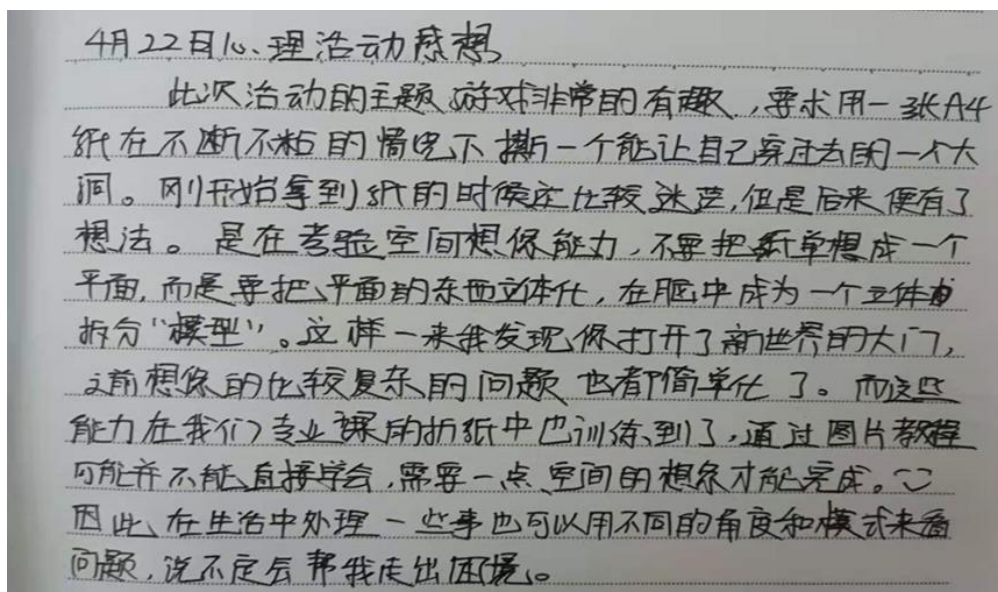 4月22日心理活动感想
此次活动的主题游戏非常的有趣，要求用一张A4
纸在不断不粘的情况下撕一个能让自己穿过去的一个大
洞。刚开始拿到纸的时候还比较迷茫，但是后来便有了
想法。是在考验空间想像能力，不要把纸单想成一个
平面，而是要把平面的东西立体化，在脑中成为一个立体
拆分“模型”。这样一来我发现像打开了新世界的大门，
之前想像的比较复杂的问题也都简单化了。而这些
能力在我们专业课的折纸中也训练到了，通过图片教程
可能并不能直接学会，需要一点空间的想象才能完成。
因此，在生活中处理一些事也可以用不同的角度和模式来看
问题，说不定会帮我走出困境。